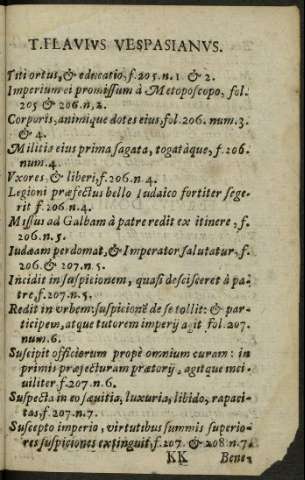 T. FLAVIVS VESPASIANVS.
Titi ortus, & educatio, f. 205. n. 1 & 2.
Imperium ei promissum à Metoposcopo, fol.
205 & 206. n, 2.
Corporis, animique dotes eius, fol. 206. num. 3.
& 4.
Militia eius prima sagata, togatàque, f. 206.
num. 4.
Vxores & liberi, f. 206. n. 4.
Legioni præfectus bello Iudaico fortiter sege-
rit f. 206 n. 4.
Missus ad Galbam à patre redit ex itinere, f.
206. n. 5.
Iudæam perdomat, & Imperator salutatur, f.
206. & 207. n. 5.
Incidit in suspicionem, quasi descisceret à pa-
tre, f. 207. n. 5.
Redit in vrbem: suspicionē de se tollit: & par-
ticipem, atque tutorem imperij agit fol. 207.
num. 6.
Suscipit officiorum propè omnium curam: in
primis præfecturam prætorij, agitque inci-
uiliter f. 207. n. 6.
Suspecta in eo sæuitia, luxuria, libido, rapaci-
tas, f. 207. n. 7.
Suscepto imperio, virtutibus summis superio-
res suspiciones extinguit, f. 207. & 208. n. 7.
KK Bene-